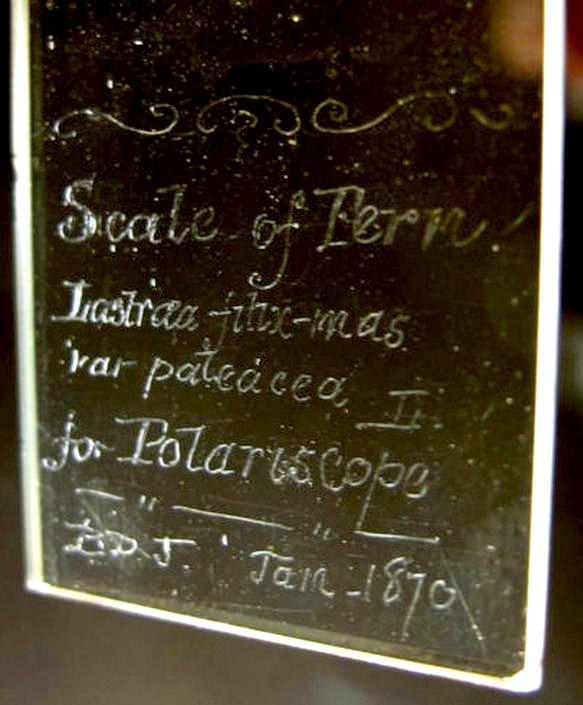 Scale of Fern
Lastræa filix-mas
var paleácea II.
for Polariscope
— " — " —
E.D.J. Jan - 1870